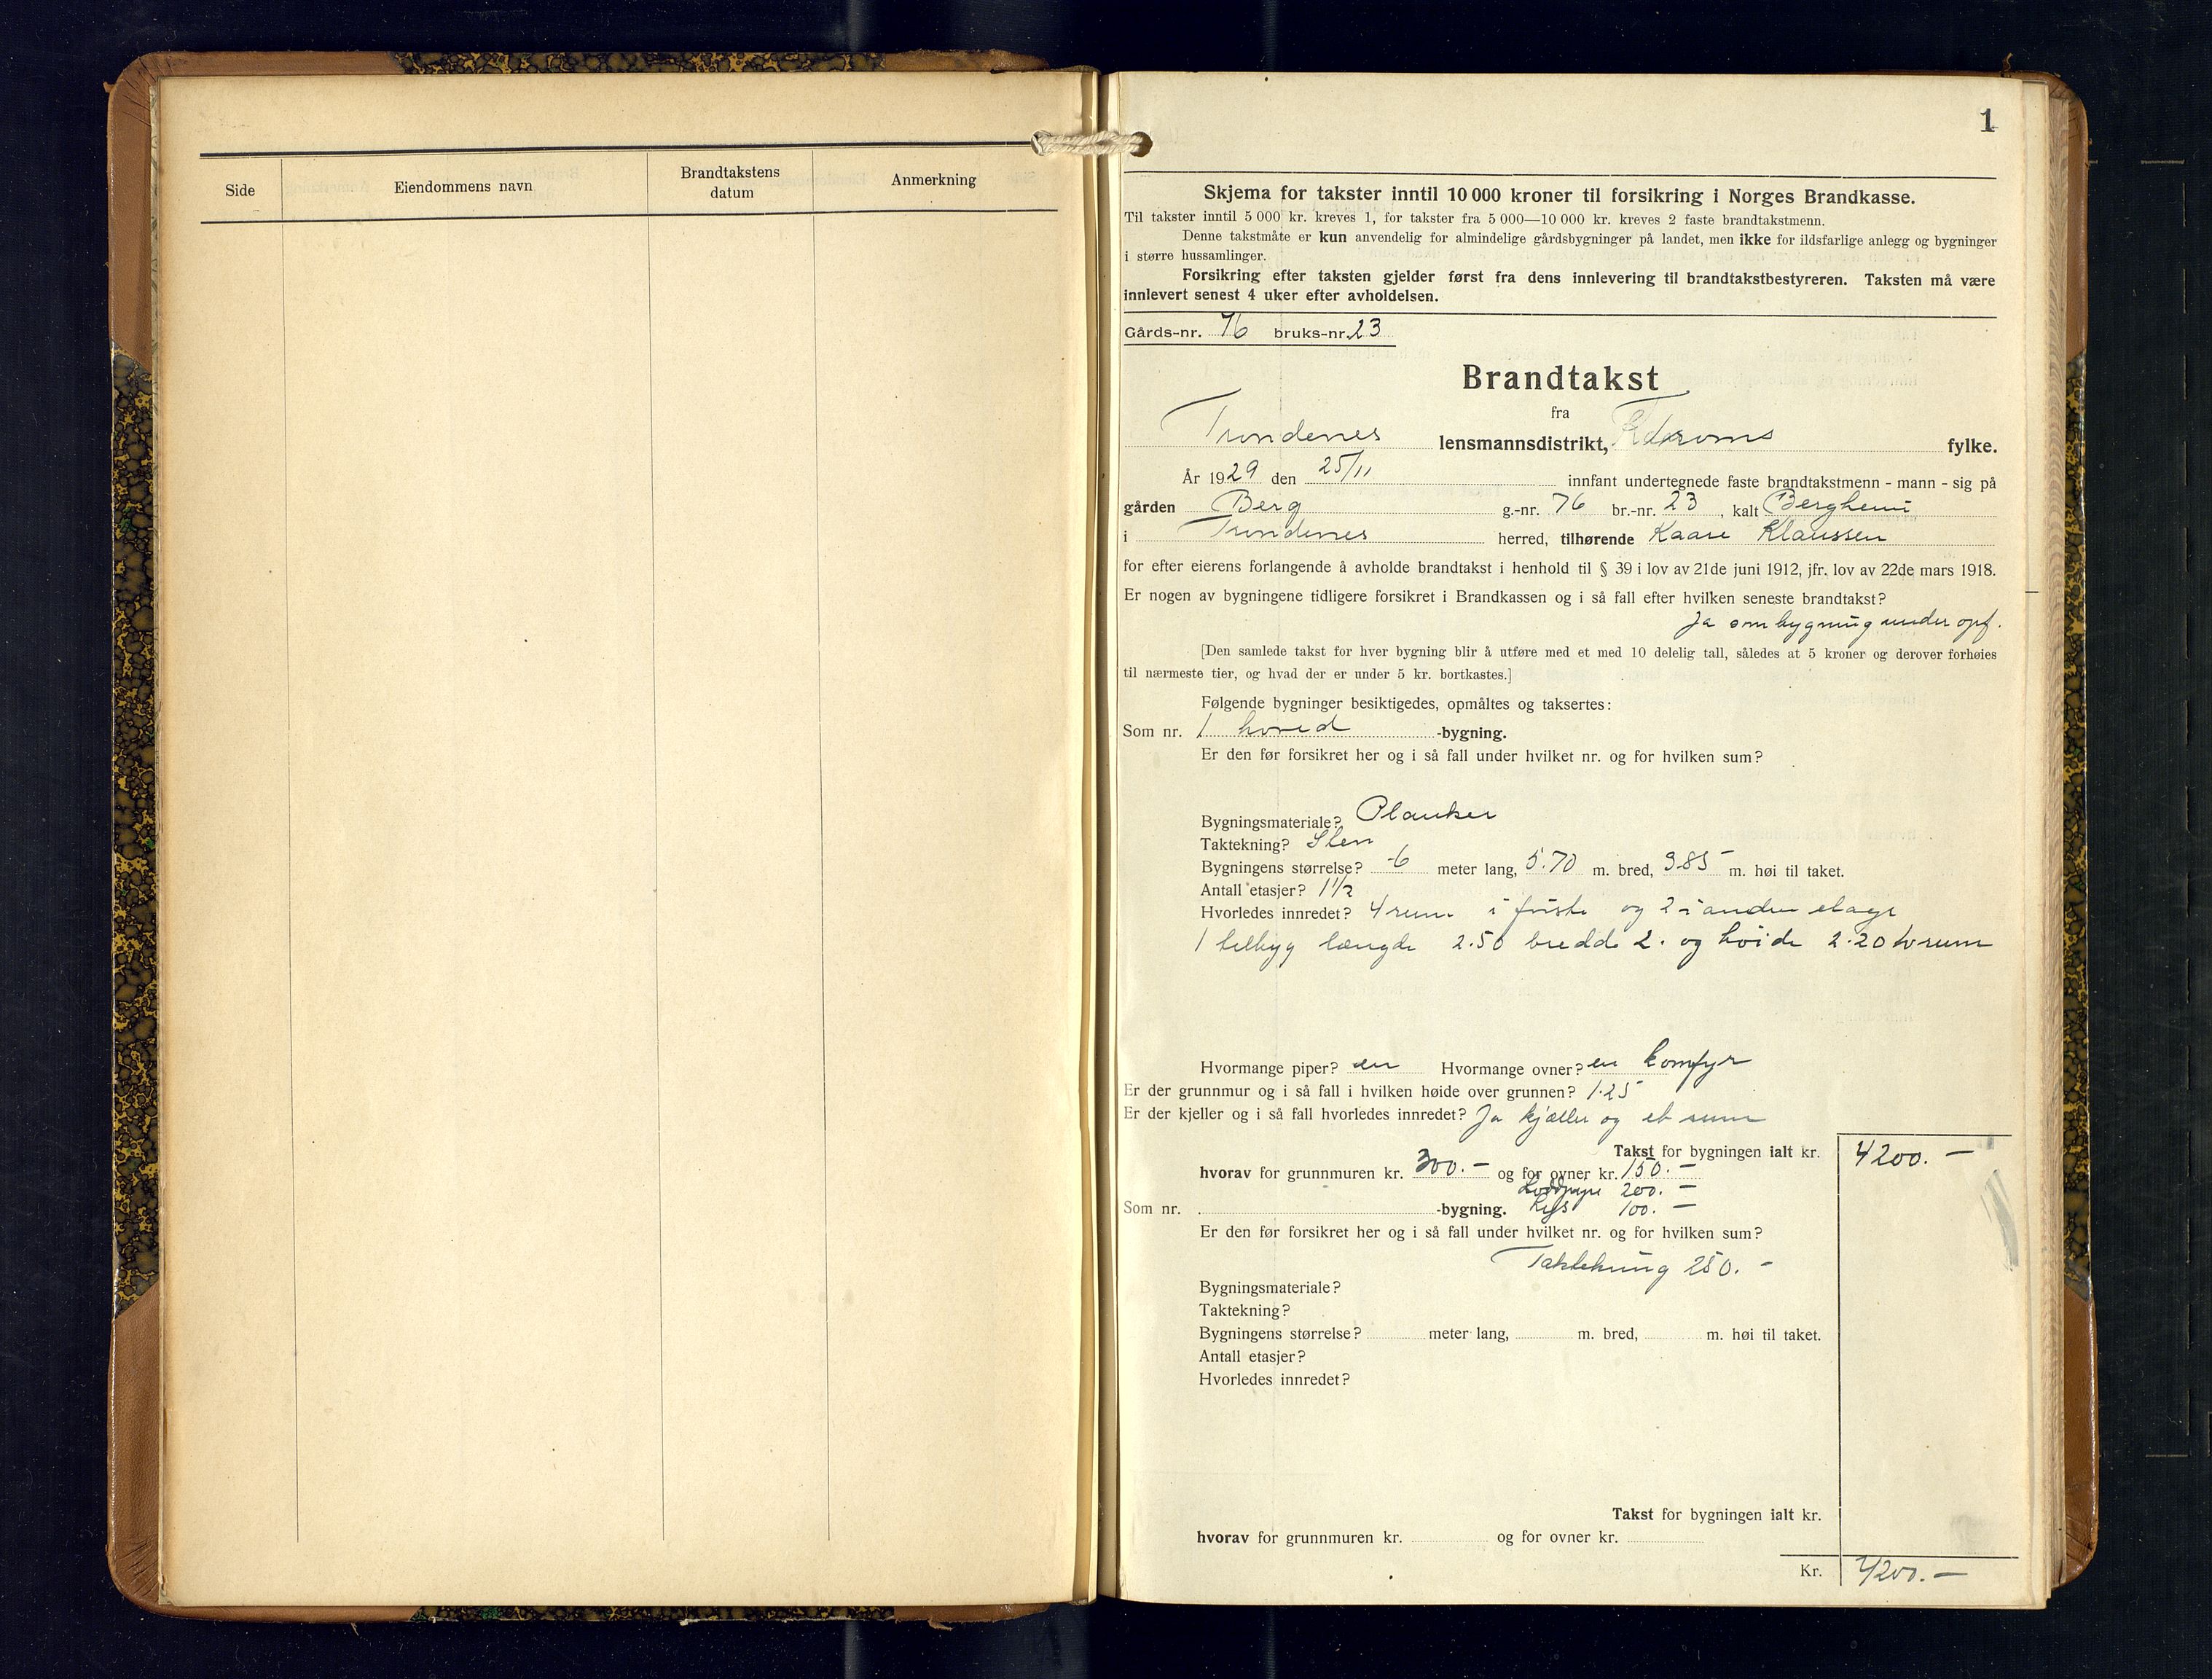 Side Eiendommens navn Brandtakstens datum Anmerkning
1
Skjema for takster inntil 10 000 kroner til forsikring i Norges Brandkasse.
Til takster inntil 5 000 kr. kreves 1, for takster fra 5 000—10 000 kr. kreves 2 faste brandtakstmenn.
Denne takstmåte er kun anvendelig for almindelige gårdsbygninger på landet, men ikke for ildsfarlige anlegg og bygninger
i større hussamlinger.
Forsikring efter taksten gjelder først fra dens innlevering til brandtakstbestyreren. Taksten må være
innlevert senest 4 uker efter avholdelsen.
Gårds-nr. 76 bruks-nr. 23
Brandtakst
fra
Trondenes lensmannsdistrikt, Troms fylke.
År 1929 den 25/11 innfant undertegnede faste brandtakstmenn - mann - sig på
gården Berg g.-nr. 76 br.-nr. 23, kalt Bergheim
i Trondenes herred, tilhørende Kaare Klaussen
for efter eierens forlangende å avholde brandtakst i henhold til § 39 i lov av 21de juni 1912, jfr. lov av 22de mars 1918.
Er nogen av bygningene tidligere forsikret i Brandkassen og i så fall efter hvilken seneste brandtakst?
Ja som bygning under opf.
[Den samlede takst for hver bygning blir å utføre med et med 10 delelig tall, således at 5 kroner og derover forhøies
til nærmeste tier, og hvad der er under 5 kr. bortkastes.]
Følgende bygninger besiktigedes, opmåltes og taksertes:
Som nr. 1 hoved -bygning.
Er den før forsikret her og i så fall under hvilket nr. og for hvilken sum?
Bygningsmateriale? Planker
Taktekning? Sten
Bygningens størrelse? 6 meter lang, 5.70 m. bred, 3.85 m. høi til taket.
Antall etasjer? 1 1/2
Hvorledes innredet? 4 rum i første og 2 i anden etage
1 tilbyg længde 2.50 bredde 2. og høide 2.20 to rum
Hvormange piper? en Hvormange ovner? en komfyr
Er der grunnmur og i så fall i hvilken høide over grunnen? 1.25
Er der kjeller og i så fall hvorledes innredet? Ja kjæller og et rum
Takst for bygningen ialt kr. 4200.—
hvorav for grunnmuren kr. 300.— og for ovner kr. 150.—
200.—
Som nr. -bygning. Lys 100.—
Er den før forsikret her og i så fall under hvilket nr. og for hvilken sum?
Taktekning 250.-
Bygningsmateriale?
Taktekning?
Bygningens størrelse? meter lang, m. bred, m. høi til taket.
Antall etasjer?
Hvorledes innredet?
Takst for bygningen ialt kr.
hvorav for grunnmuren kr. og for ovner kr.
Kr. 4200.—